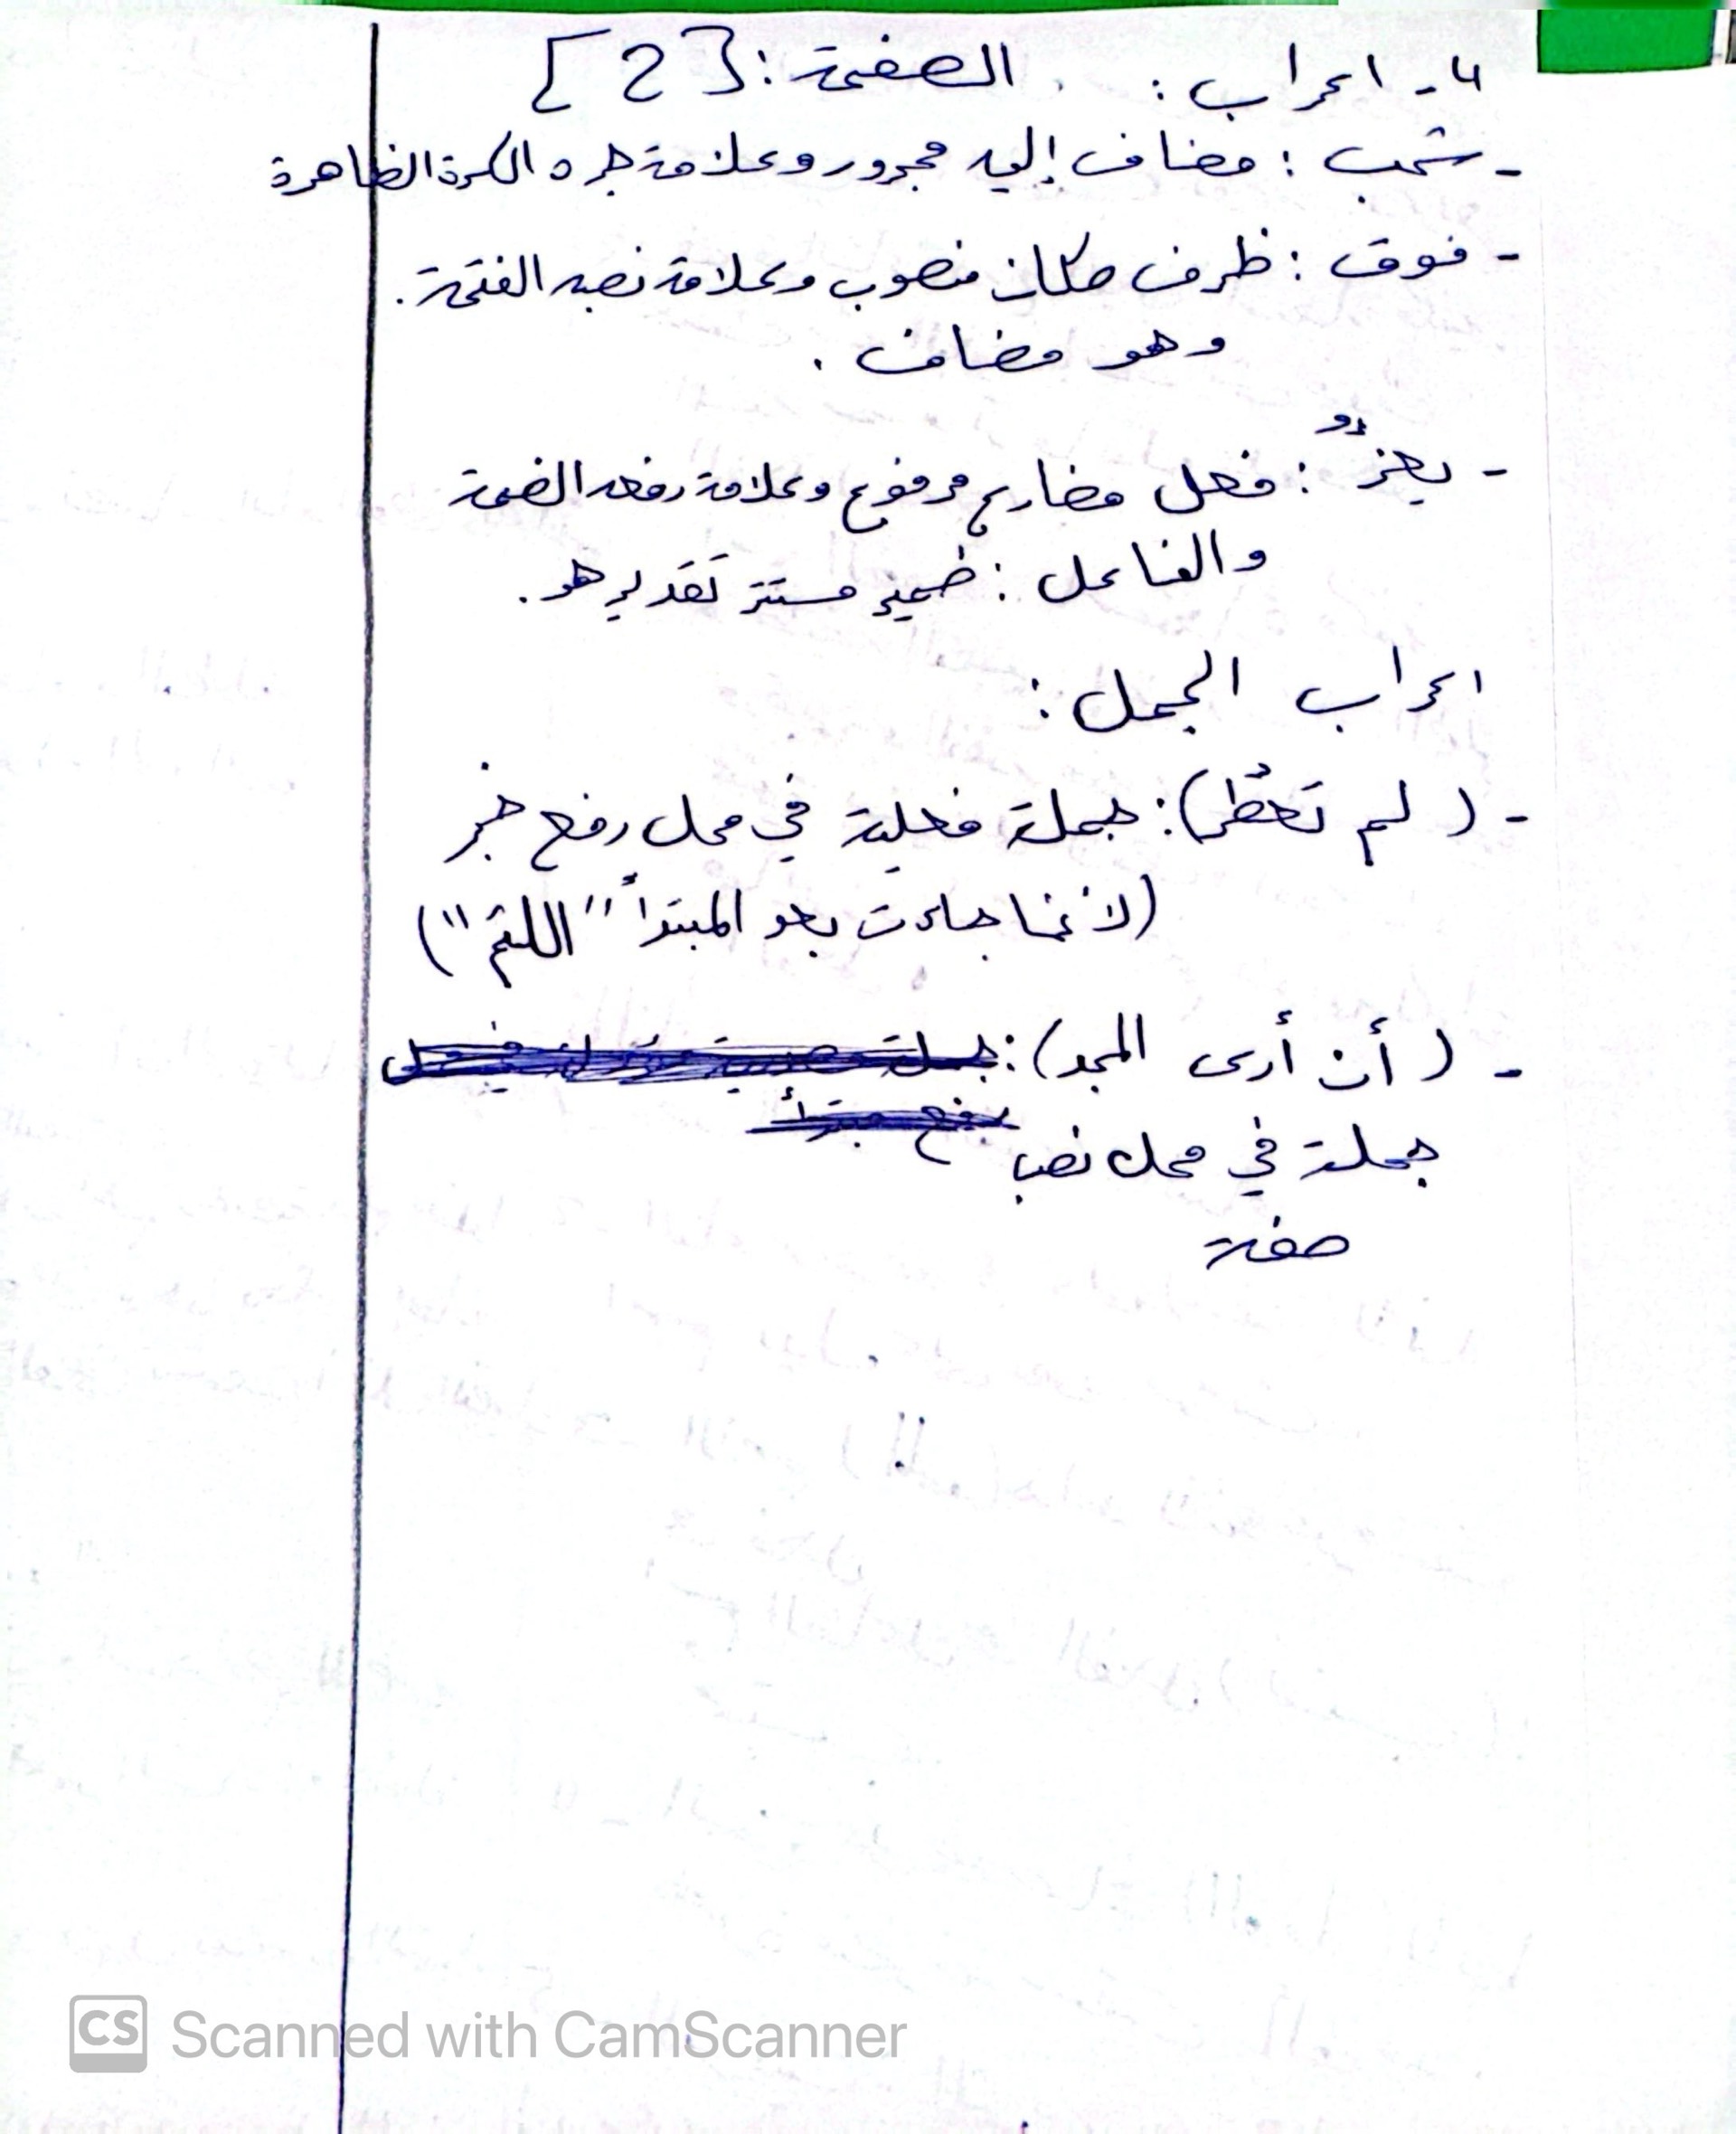 ٤- اعراب : . الصفحة : [2]
- شعب : مضاف إليه مجرور وعلامة جره الكسرة الظاهرة
- فوق : ظرف مكان منصوب وعلامة نصبه الفتحة .
وهو مضاف .
- يعزُّ : فعل مضارع مرفوع وعلامة رفعه الضمة
والفاعل : ضمير مستتر تقدير هو .
اعراب الجمل :
- ( لم تعطر ) : جملة فعلية في محل رفع خبر
(لأنها جاءت بعد المبتدأ "اللثم")
- ( أن أرى المجد ) :
جملة في محل نصب
صفة
CS Scanned with CamScanner